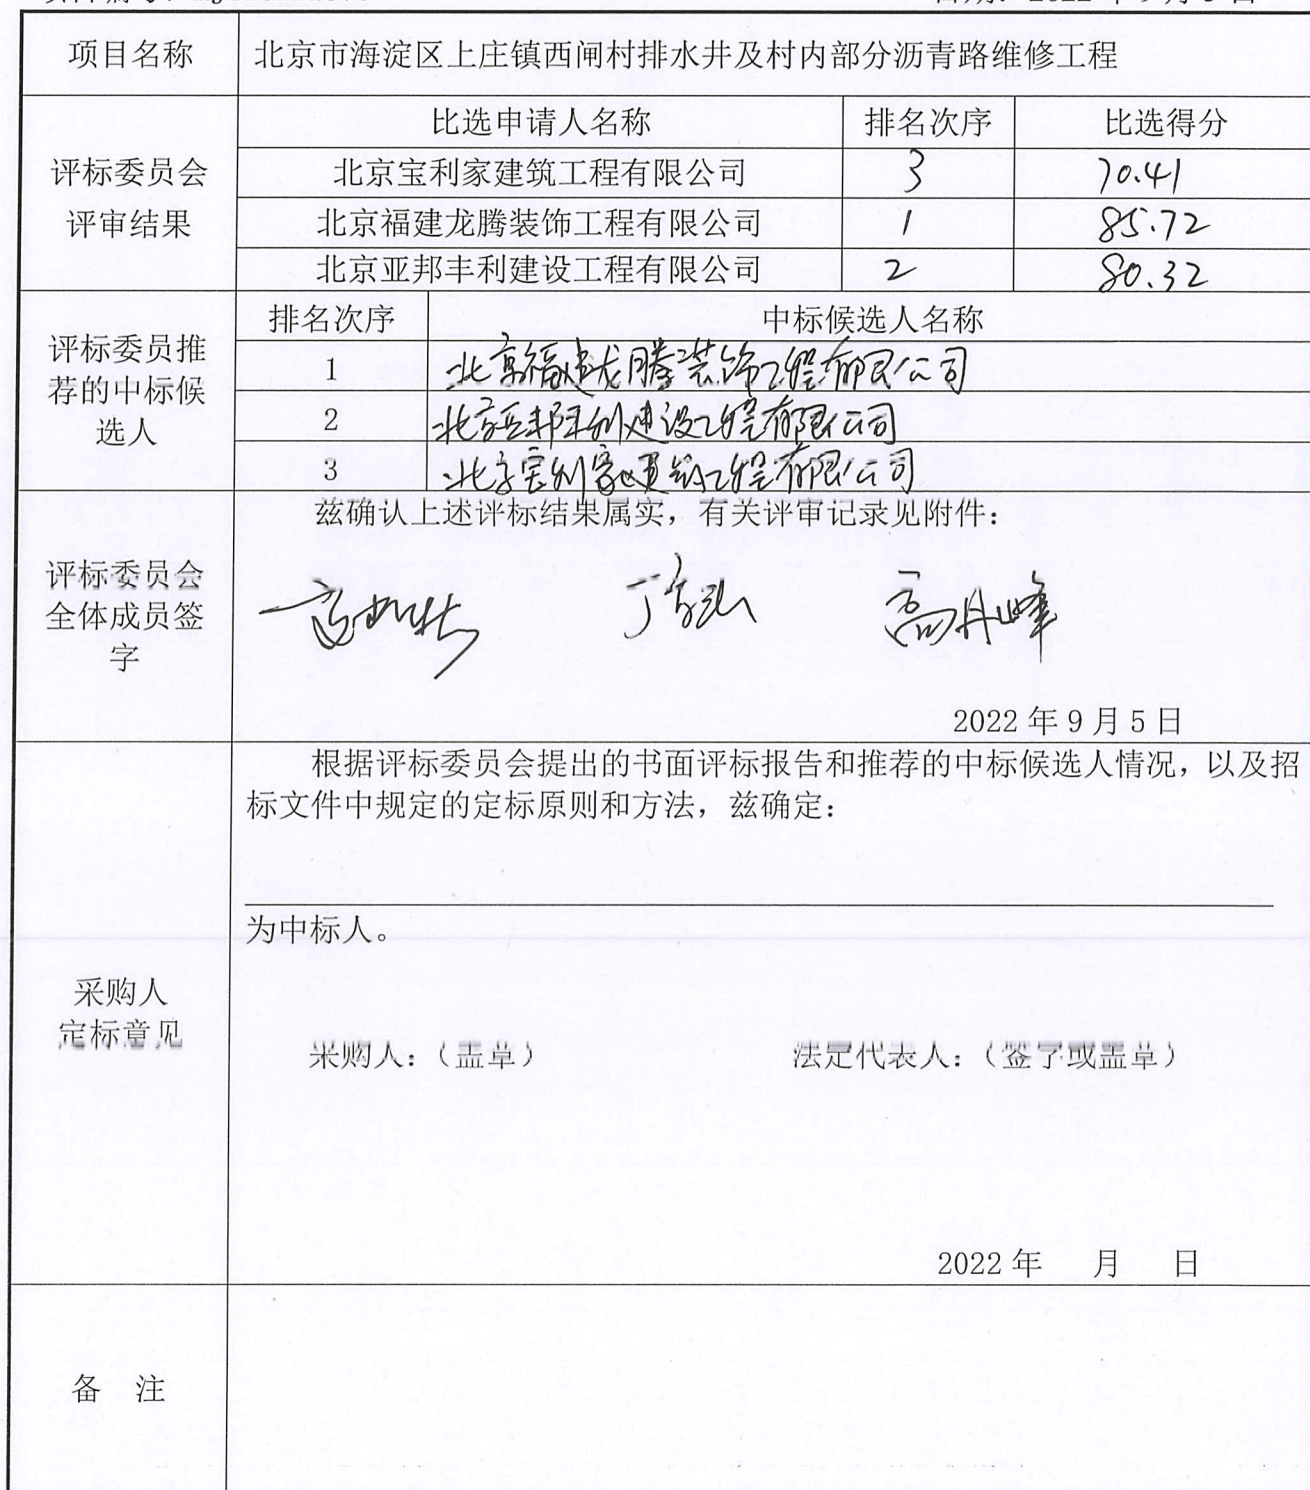 项目名称 北京市海淀区上庄镇西闸村排水井及村内部分沥青路维修工程
评标委员会
评审结果
比选申请人名称 排名次序 比选得分
北京宝利家建筑工程有限公司 3 70.41
北京福建龙腾装饰工程有限公司 1 85.72
北京亚邦丰利建设工程有限公司 2 80.32
评标委员推
荐的中标候
选人
排名次序 中标候选人名称
1 北京福建龙腾装饰工程有限公司
2 北京亚邦丰利建设工程有限公司
3 北京宝利家建筑工程有限公司
评标委员会
全体成员签
字
兹确认上述评标结果属实，有关评审记录见附件：
高丹峰
2022年9月5日
采购人
定标意见
根据评标委员会提出的书面评标报告和推荐的中标候选人情况，以及招
标文件中规定的定标原则和方法，兹确定：
为中标人。
采购人：（盖章） 法定代表人：（签字或盖章）
2022年 月 日
备 注